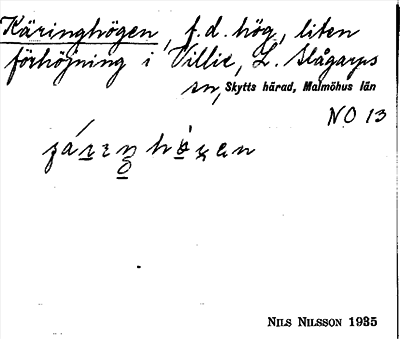 Käringhögen, f.d. hög, liten
förhöjning i Villie, L. Slågarps
sn, Skytts härad, Malmöhus län
NO 13
NILS NILSSON 1935